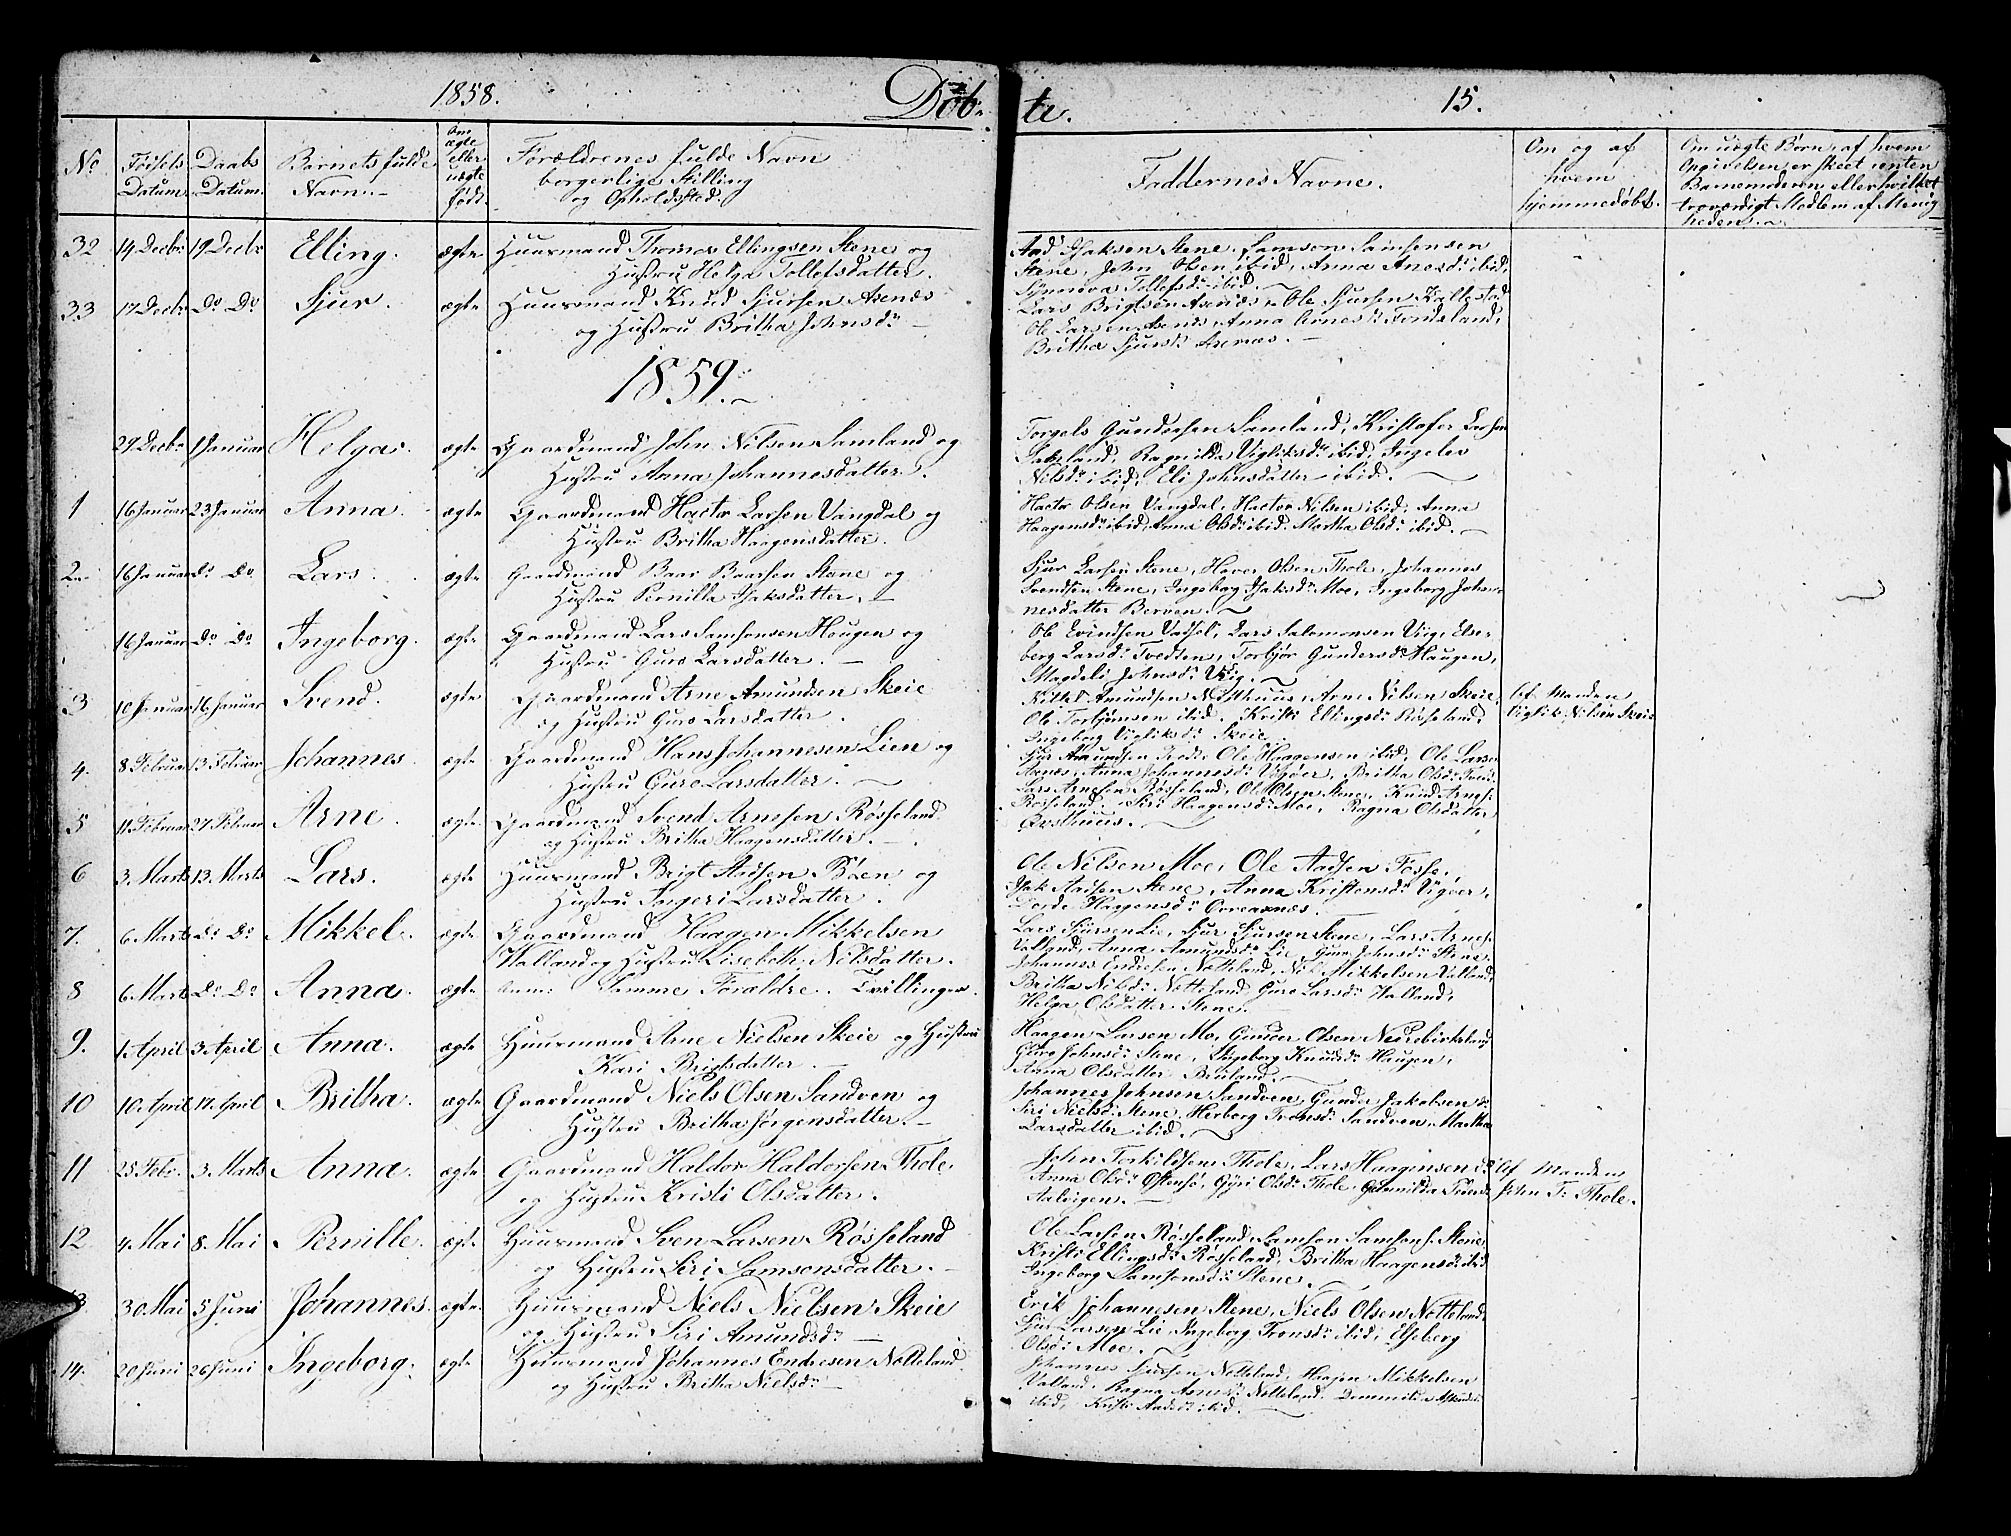 1858.
Døb-
te.
15.
No
Føtsels Datum.
Daabs Datum.
Barnets fulde Navn.-
Om ægte eller uægte født.
Forældrenes fulde Navn
borgerlige Stilling
og Opholdssted.
Faddernes Navne.
Om og af hvem hjemmedøbt.
Om uægte Børn, af hvem
Opgivelsen er skeet enten
Barnemoderen eller hvilket
troværdigt Medlem af Menig-
heden.
32 14 Decbr 19 Decbr Elling. ægte Huusmand Thomas Ellingsen Stene og
Hustru Helga Tollefsdatter.
Aad Isaksen Stene, Samson Samsonsen
Stene, John Olsen ibid, Anna Anesdr ibid,
Synnøva Tollefsdr ibid.
33 17 Decbr Do Do Sjur. ægte Huusmand Knud Sjursen Asenæs
og Hustru Britha Johnsdr
Lars Brigtsen Asenæs, Ole Sjursen Kallestad
Ole Larsen Asenæs, Anna Arnesdr
Britha Sjursdr Asenæs.
1859.
29 Decbr 1 Januar Helga. ægte Gaardmand John Nilsen Samland og
Hustru Anna Johannesdatter.
Torgels Gundersen Samland, Kristofer Larsen
Samland, Ragnilda Vigliksdr ibid, Ingelev
Nilsdr ibid, Eli Johnsdatter ibid.
1 16 Januar 23 Januar Anna. ægte Gaardmand Hactor Larsen Vangdal og
Hustru Britha Haagensdatter.
Hactor Olsen Vangdal, Hactor Nilsen ibid, Anna
Haagensdr ibid, Anna Olsdr ibid. Martha Olsdr ibid.
2 16 Januar Do Do Lars. ægte Gaardmand Baar Baarsen Stene og
Hustru Pernilla Isaksdatter.
Sjur Larsen Stene, Haver Olsen Thole, Johannes
Svendsen Stene, Ingeborg Isaksdr Moe, Ingeborg Johan-
nesdatter Berven.
16 Januar Do Do Ingeborg. ægte Gaardmand Lars Samsonsen Haugen og
Hustru Guro Larsdatter.
Ole Evindsen Vadsel, Lars Salomonsen Viig, Else-
berg Larsdr Tvedten, Torbjør Gundersdr Haugen,
Magdeli Johnsdr Viig.
3 10 Januar 16 Januar Svend. ægte Gaardmand Arne Amundsen Skeie
og Hustru Guro Larsdatter.
Kittel Amundsen Nesthuus, Arne Nilsen Skeie,
Ole Torbjørnsen ibid. Kristi Ellingsdr Røsseland,
Ingeborg Vigliksdr Skeie.
Af Manden
Viglik Nilsen Skeie
4. 8 Februar 13 Februar Johannes. ægte Gaardmand Hans Johannesen Lien og
Hustru Guro Larsdatter.
Sjur Amundsen Ole Haagensen ibid, Ole Larsen
Anna Johannesdr Vigøer, Britha Olsdr
5 11 Februar 27 Februar Arne. ægte Gaardmand Svend Arnesen Røsseland
og Hustru Britha Haagensdatter.
Lars Arnesen Røsseland, Ole Olsen Stene, Knud Arnes.
Røsseland. Siri Haagensdr Moe, Ragna Olsdatter
6 3. Marts 13. Marts Lars. ægte Huusmand Brigt Aadsen Bøen og
Hustru Ingeri Larsdatter.
Ole Nilsen Moe, Ole Aadsen Fosse,
Isak Aadsen Stene, Anna Kristensdr Vigøer,
Haagensdr
7. 6 Marts Do Do Mikkel. ægte Gaardmand Haagen Mikkelsen
Walland og Hustru Lisebeth Nilsdatter.
Lars Sjursen Lie, Sjur Sjursen Stene, Lars Arnes.
Valland, Anna Amundsdr Lie, Johnsdr Stene.
8 6 Marts Do Do Anna. ægte Samme Forældre. Tvillinger.
Johannes Endresen Notteland, Nils Mikkelsen Valland,
Britha Nilsdr Notteland, Guro Larsdr Valland,
Helga Olsdatter Stene.
9. 1. April 3 April Anna. ægte Huusmand Arne Nielsen Skeie og Hustru
Kari Brigtsdatter.
Haagen Larsen Mo, Gunder Olsen
Guro Johnsdr Stene, Ingeborg Knudsdr Haugen,
Anna Olsdatter
10 10. April 17. April Britha. ægte Gaardmand Niels Olsen Sandven og
Hustru Britha Jørgensdatter.
Johannes Johnsen Sandven, Gunder Jakobsen do
Siri Nielsdr Stene, Herborg Tronsdr Sandven, Martha
Larsdatter ibid.
11 25. Febr. 3. Marts Anna. ægte Gaardmand Haldor Haldorsen Thole,
og Hustru Kristi Olsdatter.
John Torkildsen Thole, Lars Haagensen do
Anna Olsdr Østensø, Gyri Olsdr Thole,
Aalvigen.
Af Manden
John T: Thole.
12 4. Mai 8. Mai Pernille. ægte Huusmand Sven Larsen Røsseland
og Hustru Siri Samsonsdatter.
Ole Larsen Røsseland, Samson Samsons. Stene,
Kristi Ellingsdr Røsseland, Britha Haagensdr ibid
Ingeborg Samsonsdr Stene.
13. 30 Mai 5 Juni Johannes. ægte Huusmand Niels Nielsen Skeie
og Hustru Siri Amundsdr
Erik Johannesen Stene, Niels Olsen Notteland,
Sjur Larsen Lie, Ingeborg Tronsdr ibid, Elseberg
Olsdr Moe.
14. 20 Juni 26 Juni Ingeborg. ægte Huusmand Johannes Endresen Notteland
og Hustru Britha Nielsdr
Johannes Sjursen Notteland, Haagen Mikkelsen
Valland, Ragna Arnesdr Notteland,
ibid, Kristi Aadsdr ibid.